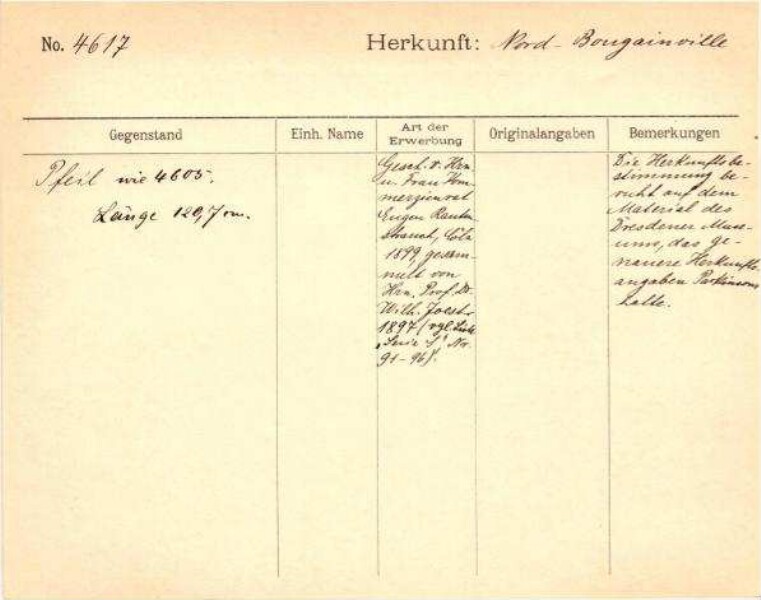 No. 4617 Herkunft: Nord-Bougainville
Gegenstand
Einh. Name
Art der
Erwerbung
Originalangaben
Bemerkungen
Pfeil wie 4605.
Länge 120,7 cm.
Gesch. v. Hrn
u. Frau Kom-
merzienrat
Eugen Rauten-
strauch, Cöln
1899, gesam-
melt von
Hrn. Prof. Dr.
Wilh. Joest
1897 (vgl. Liste
„Serie S" No.
91-96).
Die Herkunftsbe-
stimmung be-
ruht auf dem
Material des
Dresdener Muse-
ums, das ge-
nauere Herkunfts-
angaben Parkinsons
hatte.